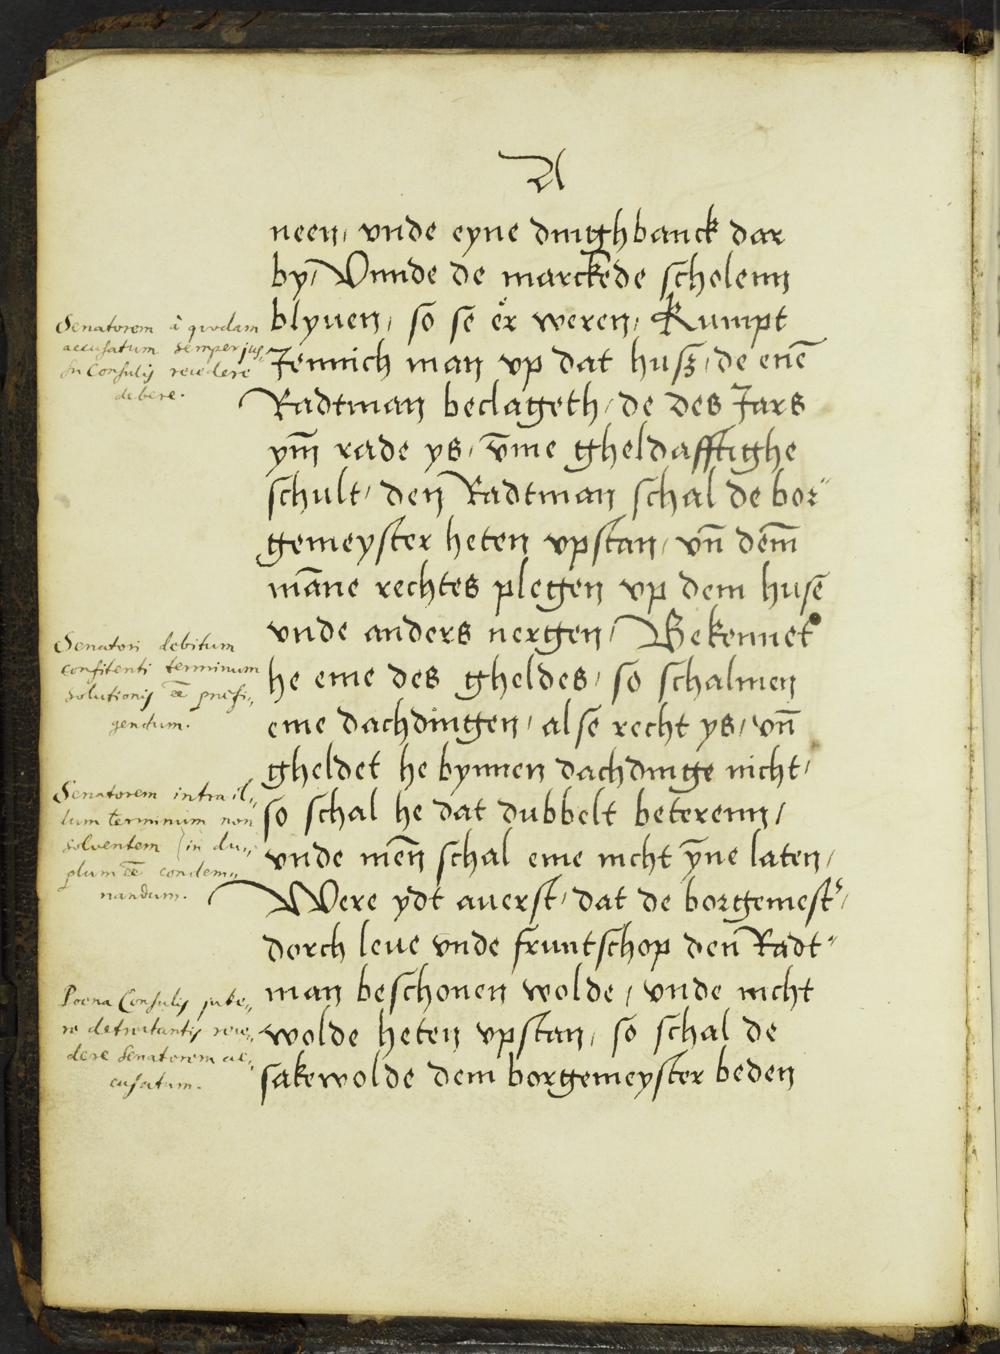 A
neen, vnde eyne dinghbanck dar
by, Vnnde de marckede scholenn
blyuen, so se er weren, Kumpt
Jennich man vp dat husz, de enē
Radtman beclageth, de des Jars
ym̄ rade ys, v̄me gheldafftighe
schult, den Radtman schal de bor"
gemeyster heten vpstan, vn̄ dem̄
māne rechtes plegen vp dem husē
vnde anders nergen, Bekennet
he eme des gheldes, so schalmen
eme dachdingen, alse recht ys, vn̄
gheldet he bynnen dachdinge nicht,
so schal he dat dubbelt beterenn,
vnde men̄ schal eme nicht ȳne laten,
Were ydt auerst, dat de borgemest',
dorch leue vnde fruntschop den Radt"
man beschonen wolde, vnde nicht
wolde heten vpstan, so schal de
sakewolde dem borgemeyster beden
Senatorem à quodam
accusatum semper jus-
su Consulis recedere
debere.
Senatori debitum
confitenti terminum
solutionis ēē prefi,,
gendum.
Senatorem intra il,,
lum terminum non
solventem in du,,
plum ēē condem,,
nandum.
Poena Consulis jube,,
re detrectantis rece,,
dere Senatorem ac,,
cusatum.